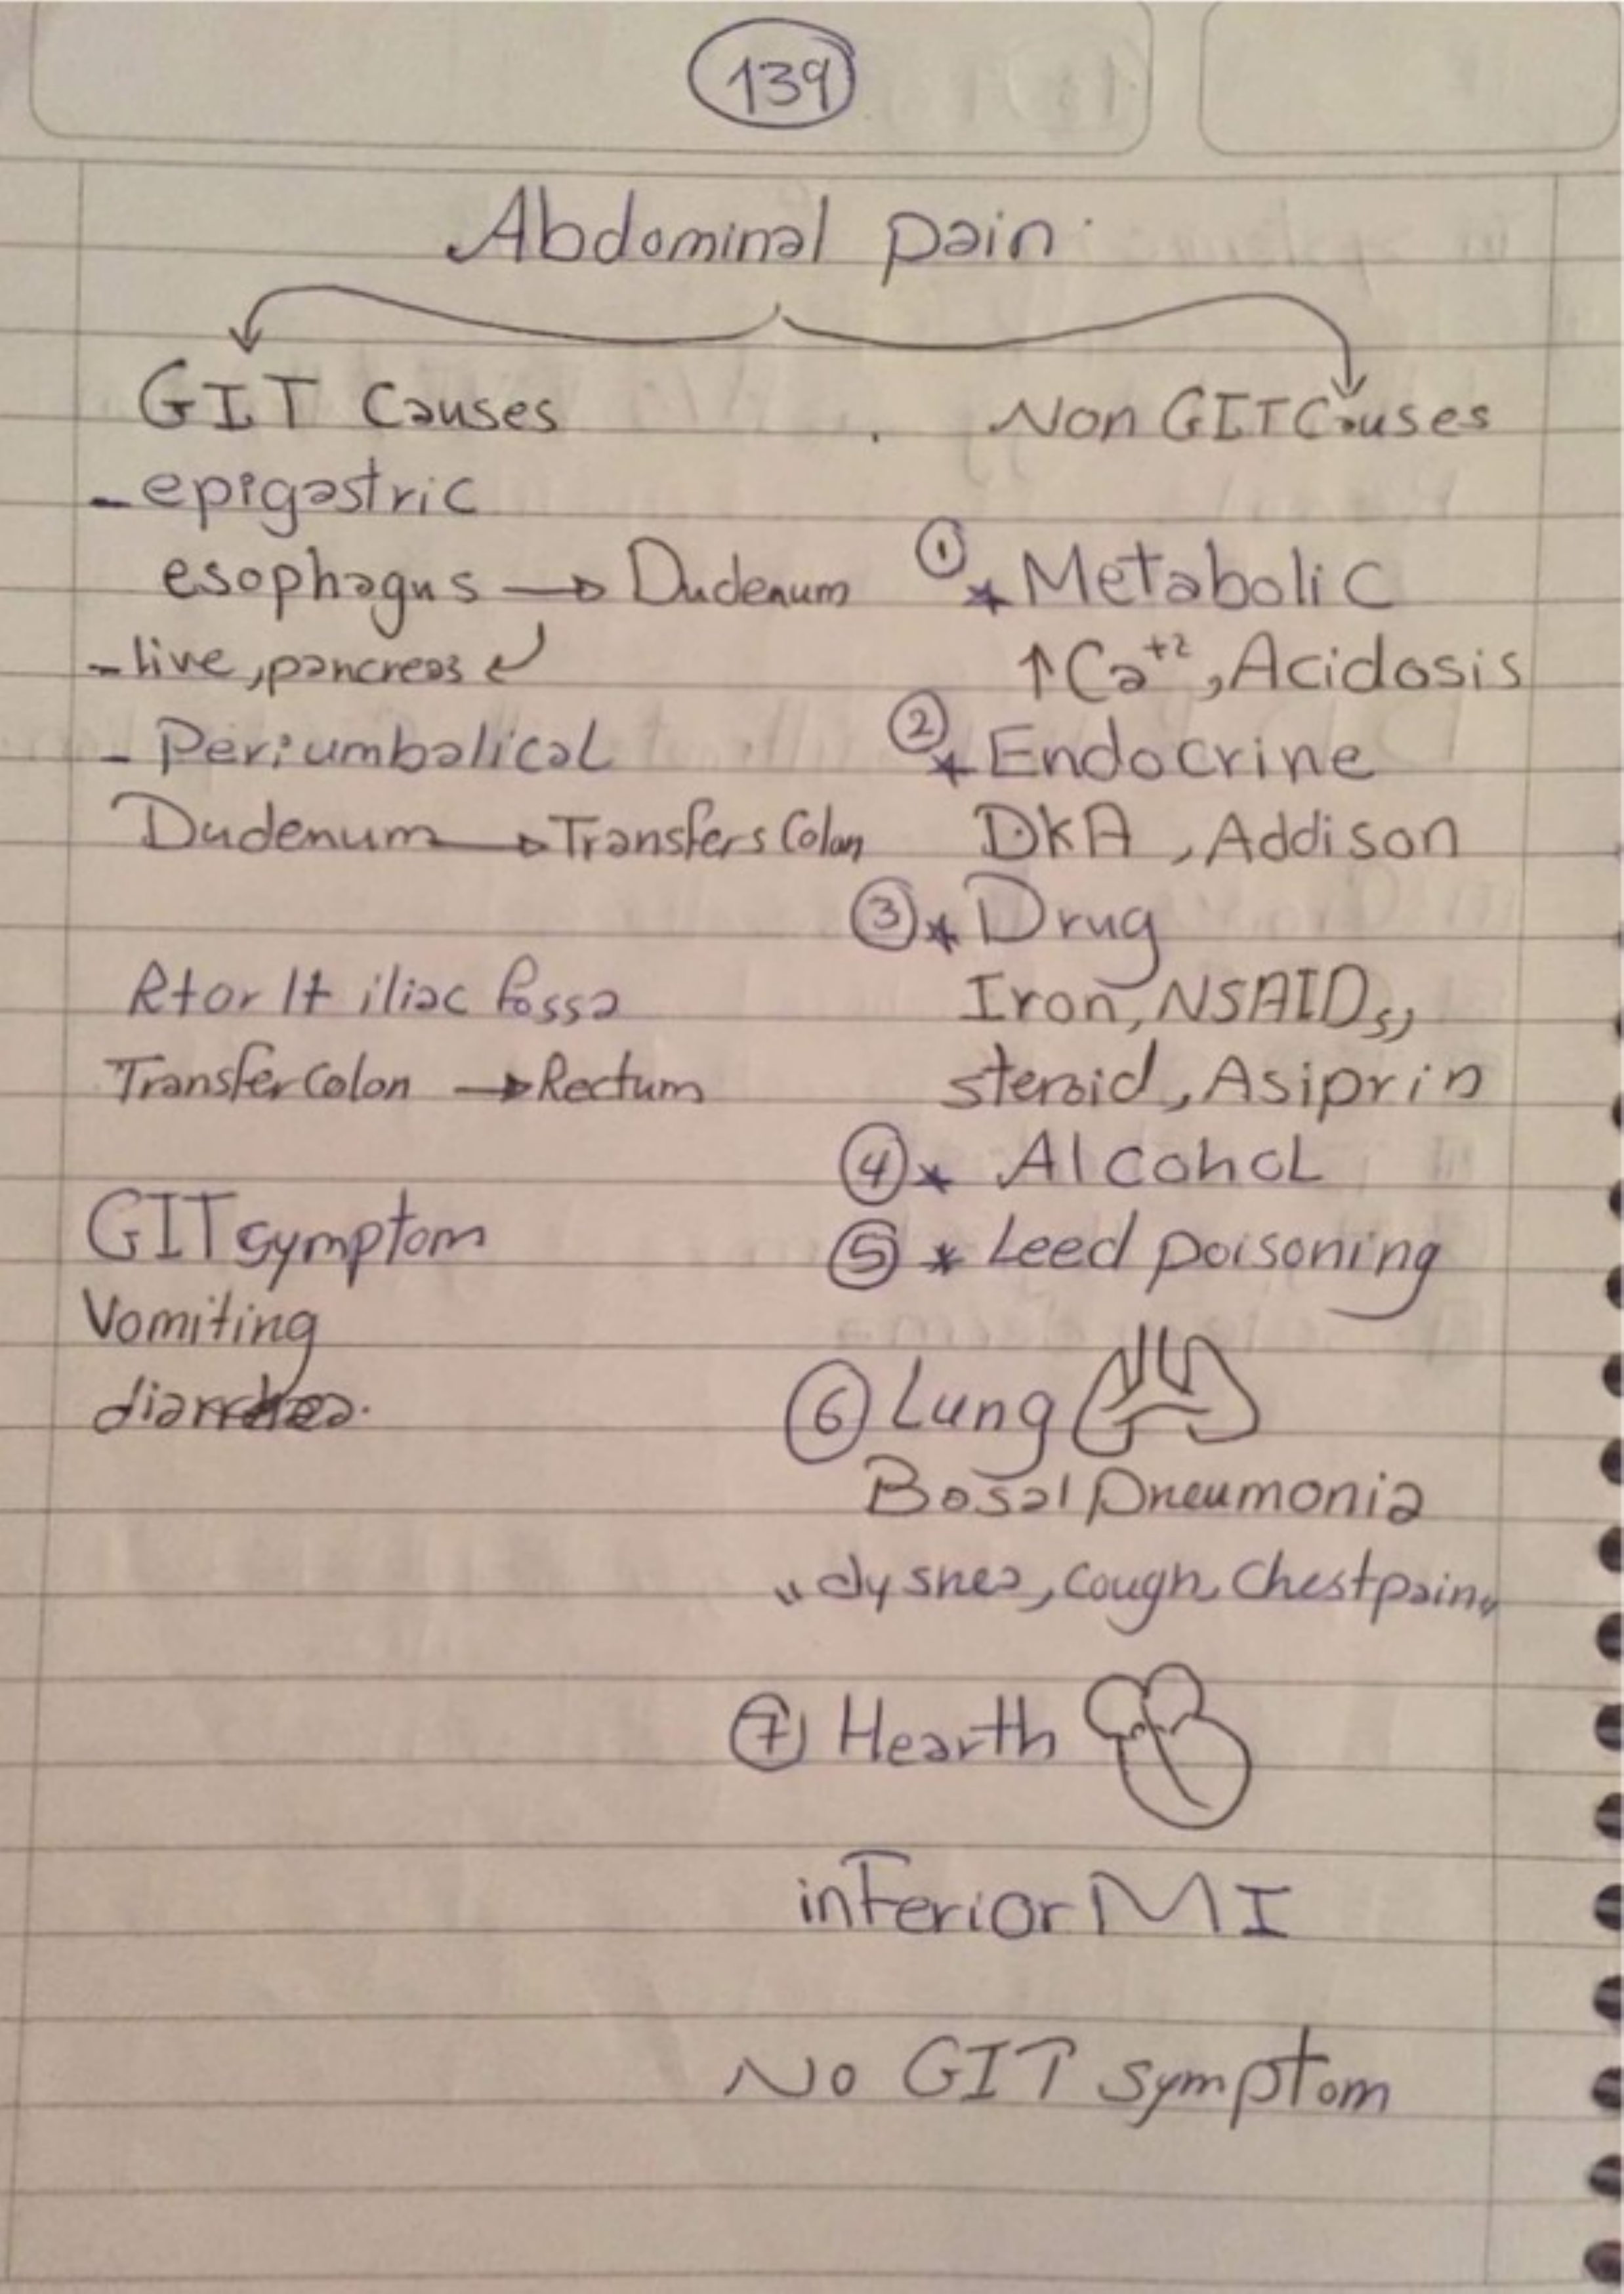 139
Abdominal pain
GIT Causes
- epigastric
esophagus → Dudenum
- live, pancreas ↲
- Periumbalical
Dudenum → Transfers Colon
Rt or lt iliac fossa
Transfer Colon → Rectum
GIT symptom
Vomiting
diarrhea.
Non GIT Causes
① * Metabolic
↑ Ca+2, Acidosis
② * Endocrine
DKA, Addison
③ * Drug
Iron, NSAIDs,
steroid, Asiprin
④ * Alcohol
⑤ * Leed poisoning
⑥ Lung
Bosal Pneumonia
"dysnea, cough, Chest pain"
⑦ Hearth
inferior MI
No GIT symptom